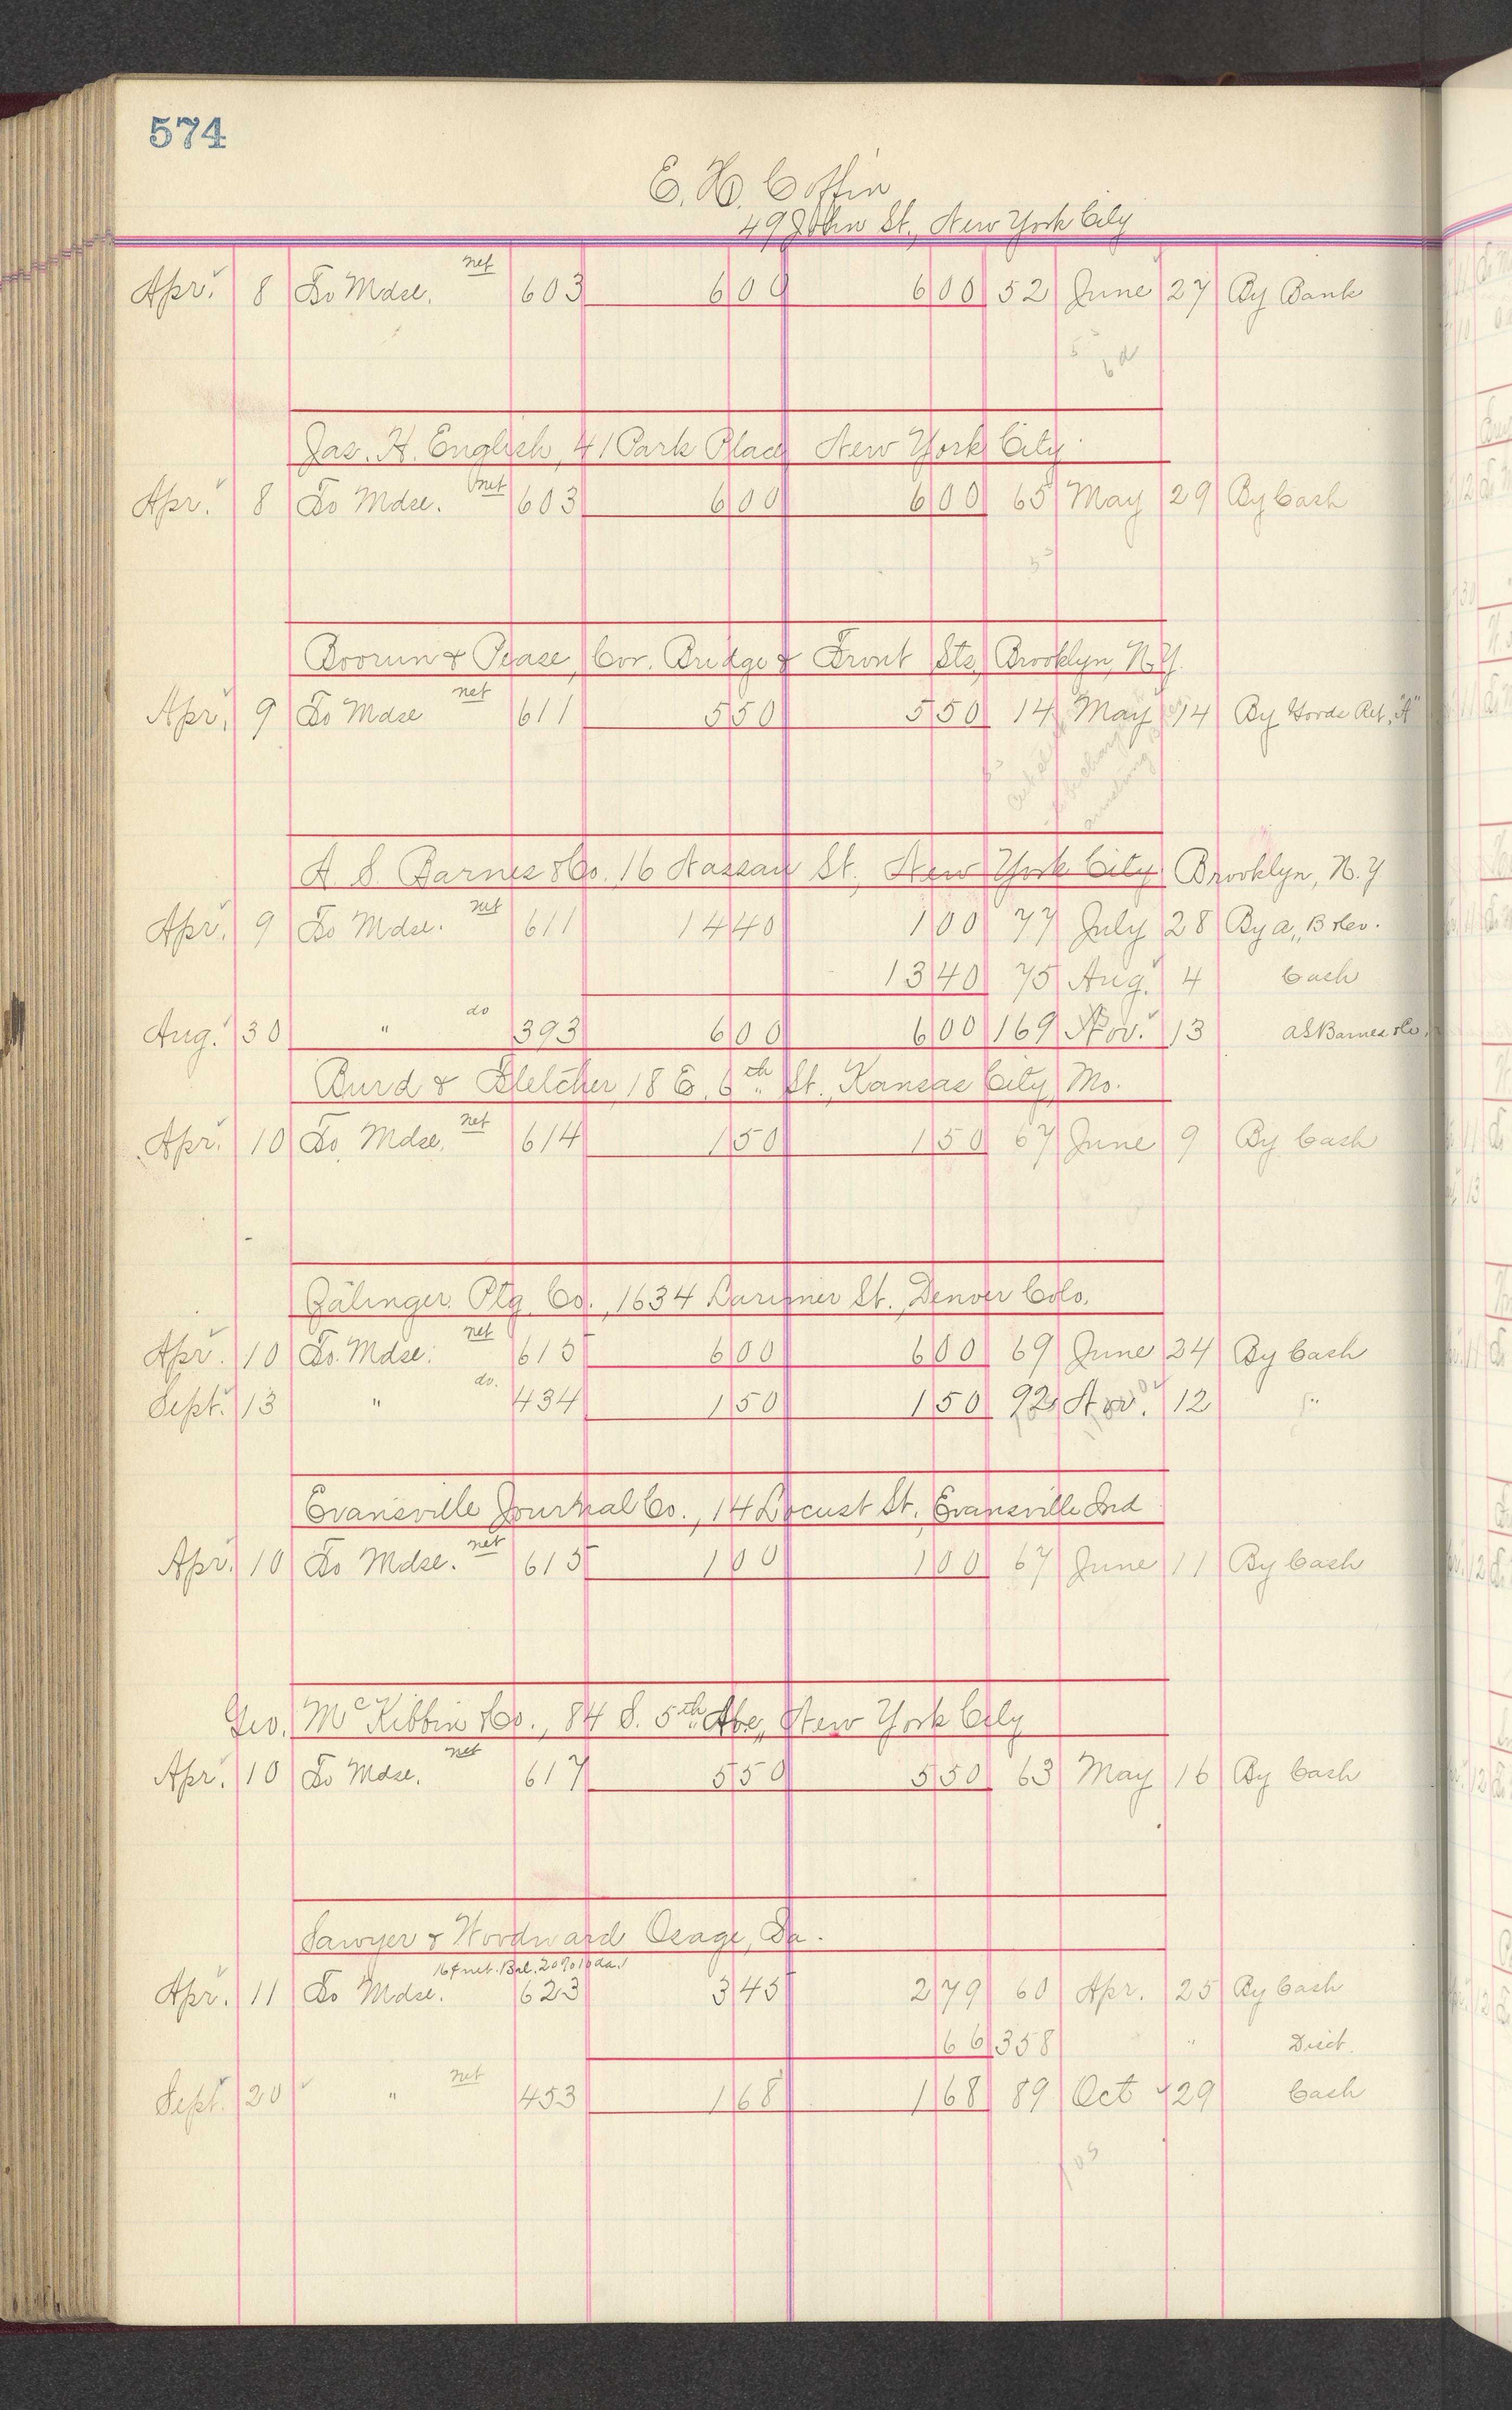 574
E. H. Coffin
49 John St., New York City
Apr. 8 To Mdse. net 603 6 00 6 00 52 June 27 By Bank
Jas. H. English, 41 Park Place New York City
Apr. 8 To Mdse. net 603 6 00 6 00 65 May 29 By Cash
Boorum & Pease, Cor. Bridge & Front Sts, Brooklyn, N.Y.
Apr. 9 To Mdse net 611 5 50 5 50 14 May 14 By Goods Ret. "A"
A. S. Barnes & Co. 16 Nassau St., New York City Brooklyn, N.Y
Apr. 9 To Mdse. net 611 14 40 1 00 77 July 28 By
13 40 75 Aug. 4 Cash
Aug. 30 " do 393 6 00 6 00 169 Nov. 13 A S Barnes & Co.
Burd & Fletcher, 18 E. 6th St., Kansas City, Mo.
Apr. 10 To Mdse. net 614 1 50 1 50 67 June 9 By Cash
Ptg. Co., 1634 Larimer St., Denver Colo.
Apr. 10 To Mdse. net 615 6 00 6 00 69 June 24 By Cash
Sept. 13 " do. 434 1 50 1 50 92 Nov. 12 "
Evansville Journal Co., 14 Locust St. Evansville Ind
Apr. 10 To Mdse. net 615 1 00 1 00 67 June 11 By Cash
Geo. McKibbin & Co., 84 & 5th Ave., New York City
Apr. 10 To Mdse. net 617 5 50 5 50 63 May 16 By Cash
Sawyer & Woodward Osage, Ia.
16¢ net. Bal. 20% 10 da.
Apr. 11 To Mdse. 623 3 45 2 79 60 Apr. 25 By Cash
66 358 " Disct.
Sept. 20 " net 453 1 68 1 68 89 Oct 29 Cash